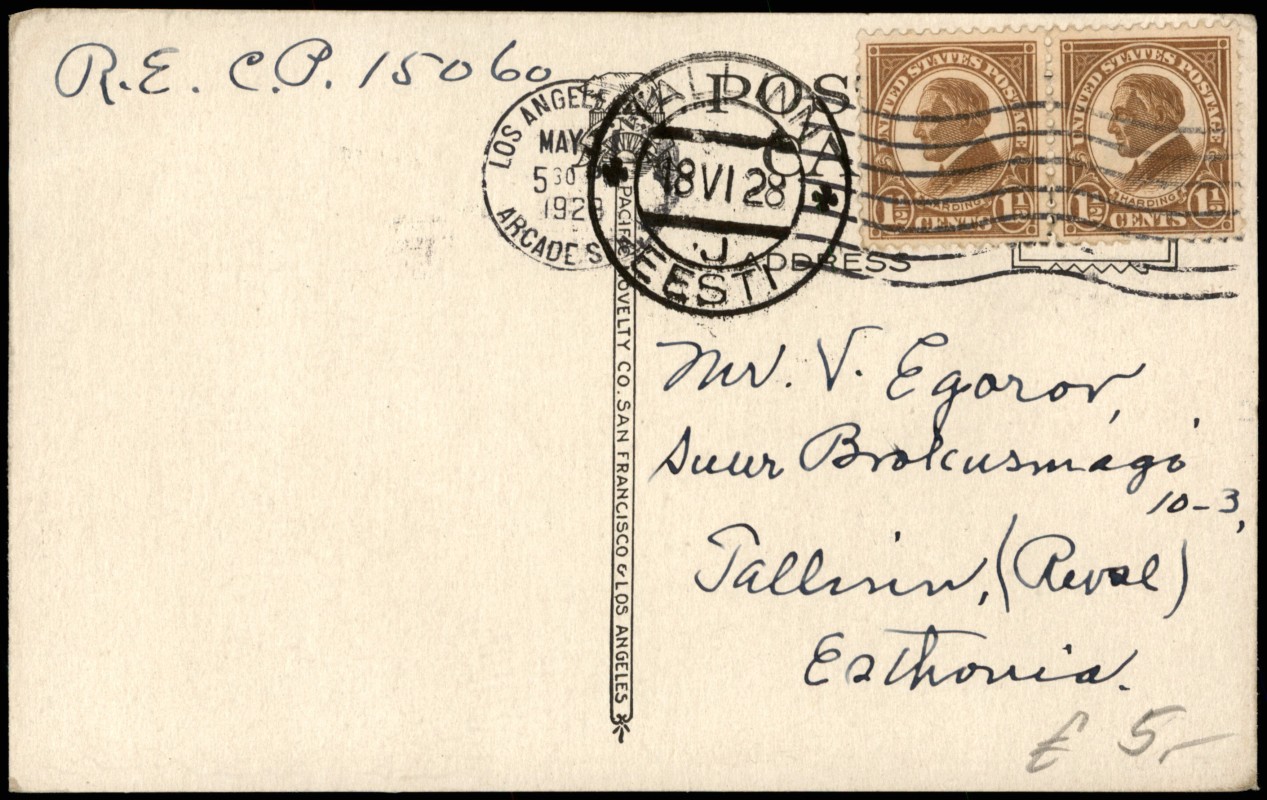 R.E. C.P. 15060
LOS ANGELE
MAY
5 30
192
ARCADE S
TALLINN
18 VI 28
J
EESTI
POS
CA
ADDRESS
UNITED STATES POSTAGE
HARDING
1½ CENTS 1½
UNITED STATES POSTAGE
HARDING
1½ CENTS 1½
PACIFIC NOVELTY CO. SAN FRANCISCO & LOS ANGELES
Mr. V. Egorov,
Suur Brokusmägi
10-3,
Tallinn, (Reval)
Esthonia.
£ 5,-